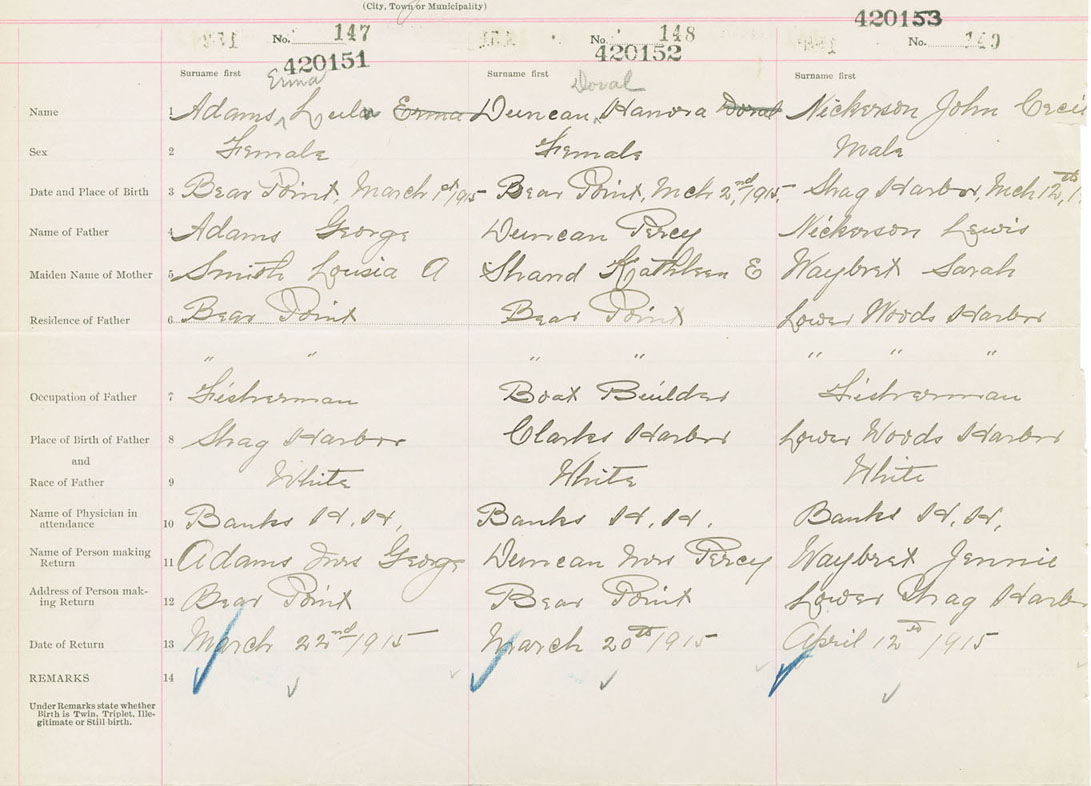 (City, Town or Municipality)
420153
No. 147 No. 148 No. 149
420151 420152
Surname first Erma Surname first Doval Surname first
Name 1 Adams, Lula Erma Duncan, Hanora Doval Nickerson John Ceci
Sex 2 Female Female Male
Date and Place of Birth 3 Bear Point, March 1st/1915 Bear Point, Mch 2nd, 1915 Shag Harbor, Mch 12th, 1
Name of Father 4 Adams George Duncan Percy Nickerson Lewis
Maiden Name of Mother 5 Smith Lousia A Shand Kathleen E Waybret Sarah
Residence of Father 6 Bear Point Bear Point Lower Woods Harbor
" " " " " " "
Occupation of Father 7 Fisherman Boat Builder Fisherman
Place of Birth of Father 8 Shag Harbor Clarks Harbor Lower Woods Harbor
and
Race of Father 9 White White White
Name of Physician in
attendance 10 Banks H. H. Banks H. H. Banks H. H.
Name of Person making
Return 11 Adams Mrs George Duncan Mrs Percy Waybret Jennie
Address of Person mak-
ing Return 12 Bear Point Bear Point Lower Shag Harb
Date of Return 13 March 22nd/1915 March 20th/1915 April 12th/1915
REMARKS 14
Under Remarks state whether
Birth is Twin, Triplet, Ille-
gitimate or Still birth.